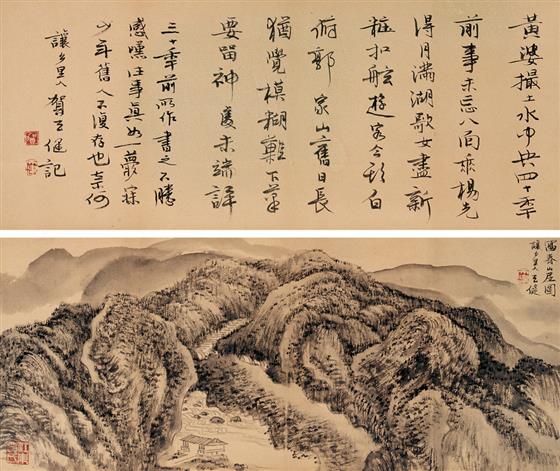 黃婆撮土水中央四十年
前事未忘八面垂楊先
得月滿湖歌女盡新
粧扣舷遊客今頭白
郭家山舊日長
猶覺模糊難下筆
要留神處未端詳
三十年前所作書之不勝
感嘆往事真如一夢寐
少年舊人不復存也奈何
讓鄉里人賀天健記
富春山居圖
讓鄉里人天健